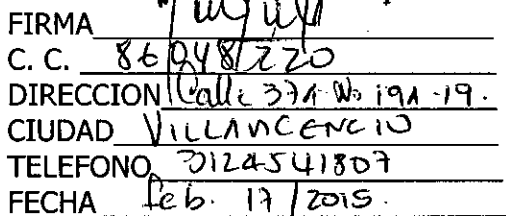 FIRMA
C. C. 86048220
DIRECCION Calle 37A No 19A-19.
CIUDAD VILLAVICENCIO
TELEFONO 3124541807
FECHA feb. 17 / 2015.